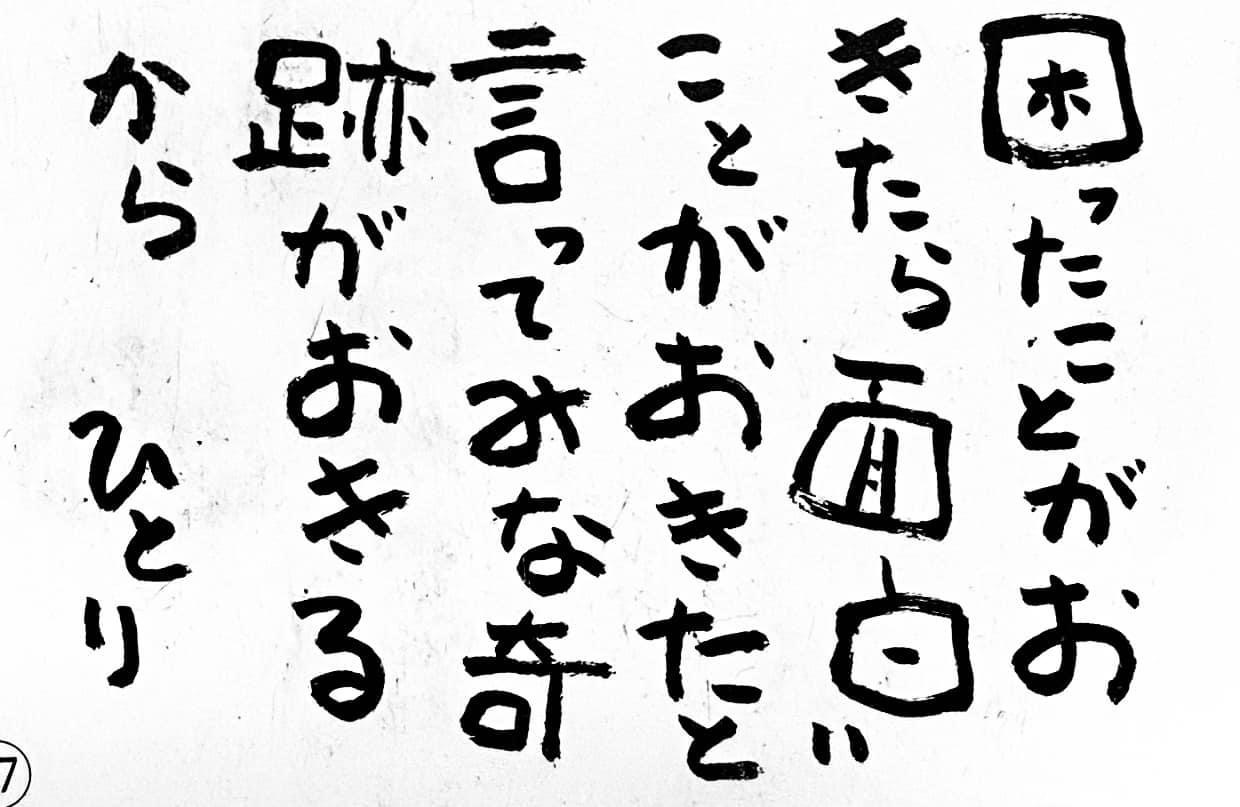 困ったことがお
きたら面白い
ことがおきたと
言ってみな奇
跡がおきる
から ひとり
7